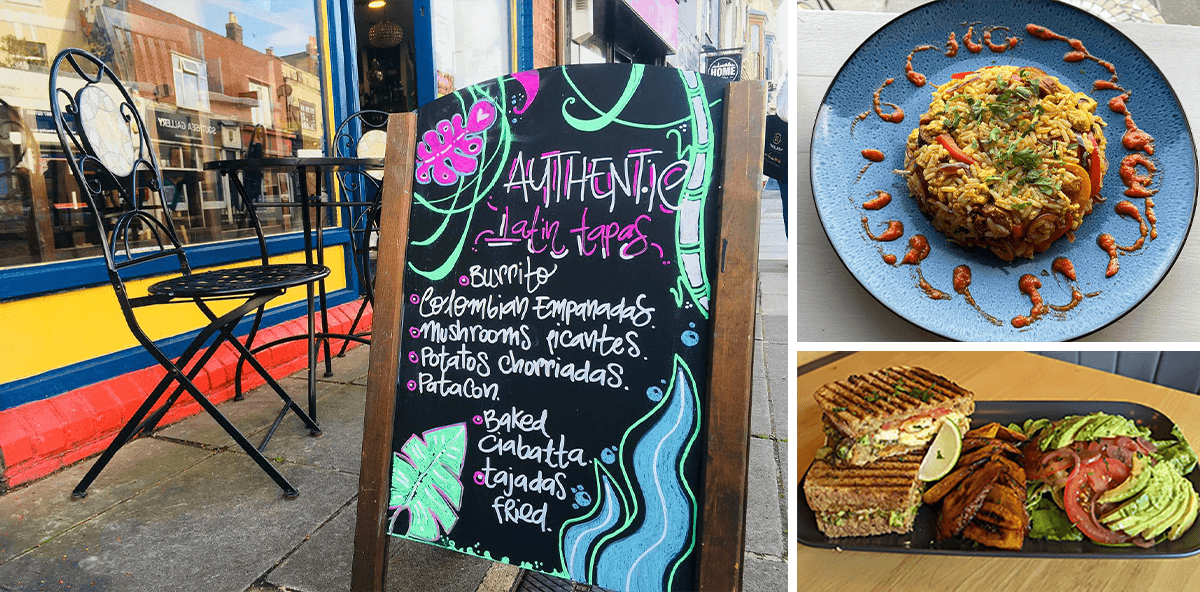 AUTHENTIC
Latin tapas
Burrito
Colombian Empanadas.
Mushrooms picantes.
Potatos chorriadas.
Patacon.
Baked
Ciabatta.
tajadas
fried.
SOUTHSEA GALLERY
HOME